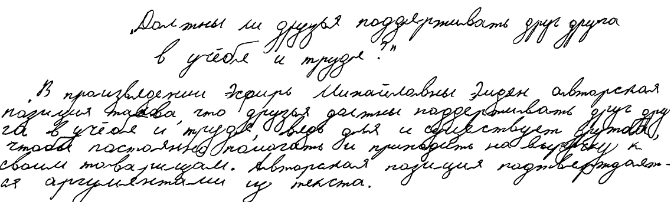 „Должны ли друзья поддерживать друг друга
в учёбе и труде?"
В произведении Эсфирь Михайловны Эмден авторская
позиция такова, что друзья должны поддерживать друг дру
га в учёбе и труде, ведь для и существует дружба,
чтобы постоянно помогать и приходить на выручку к
своим товарищам. Авторская позиция подтверждает-
ся аргументами из текста.